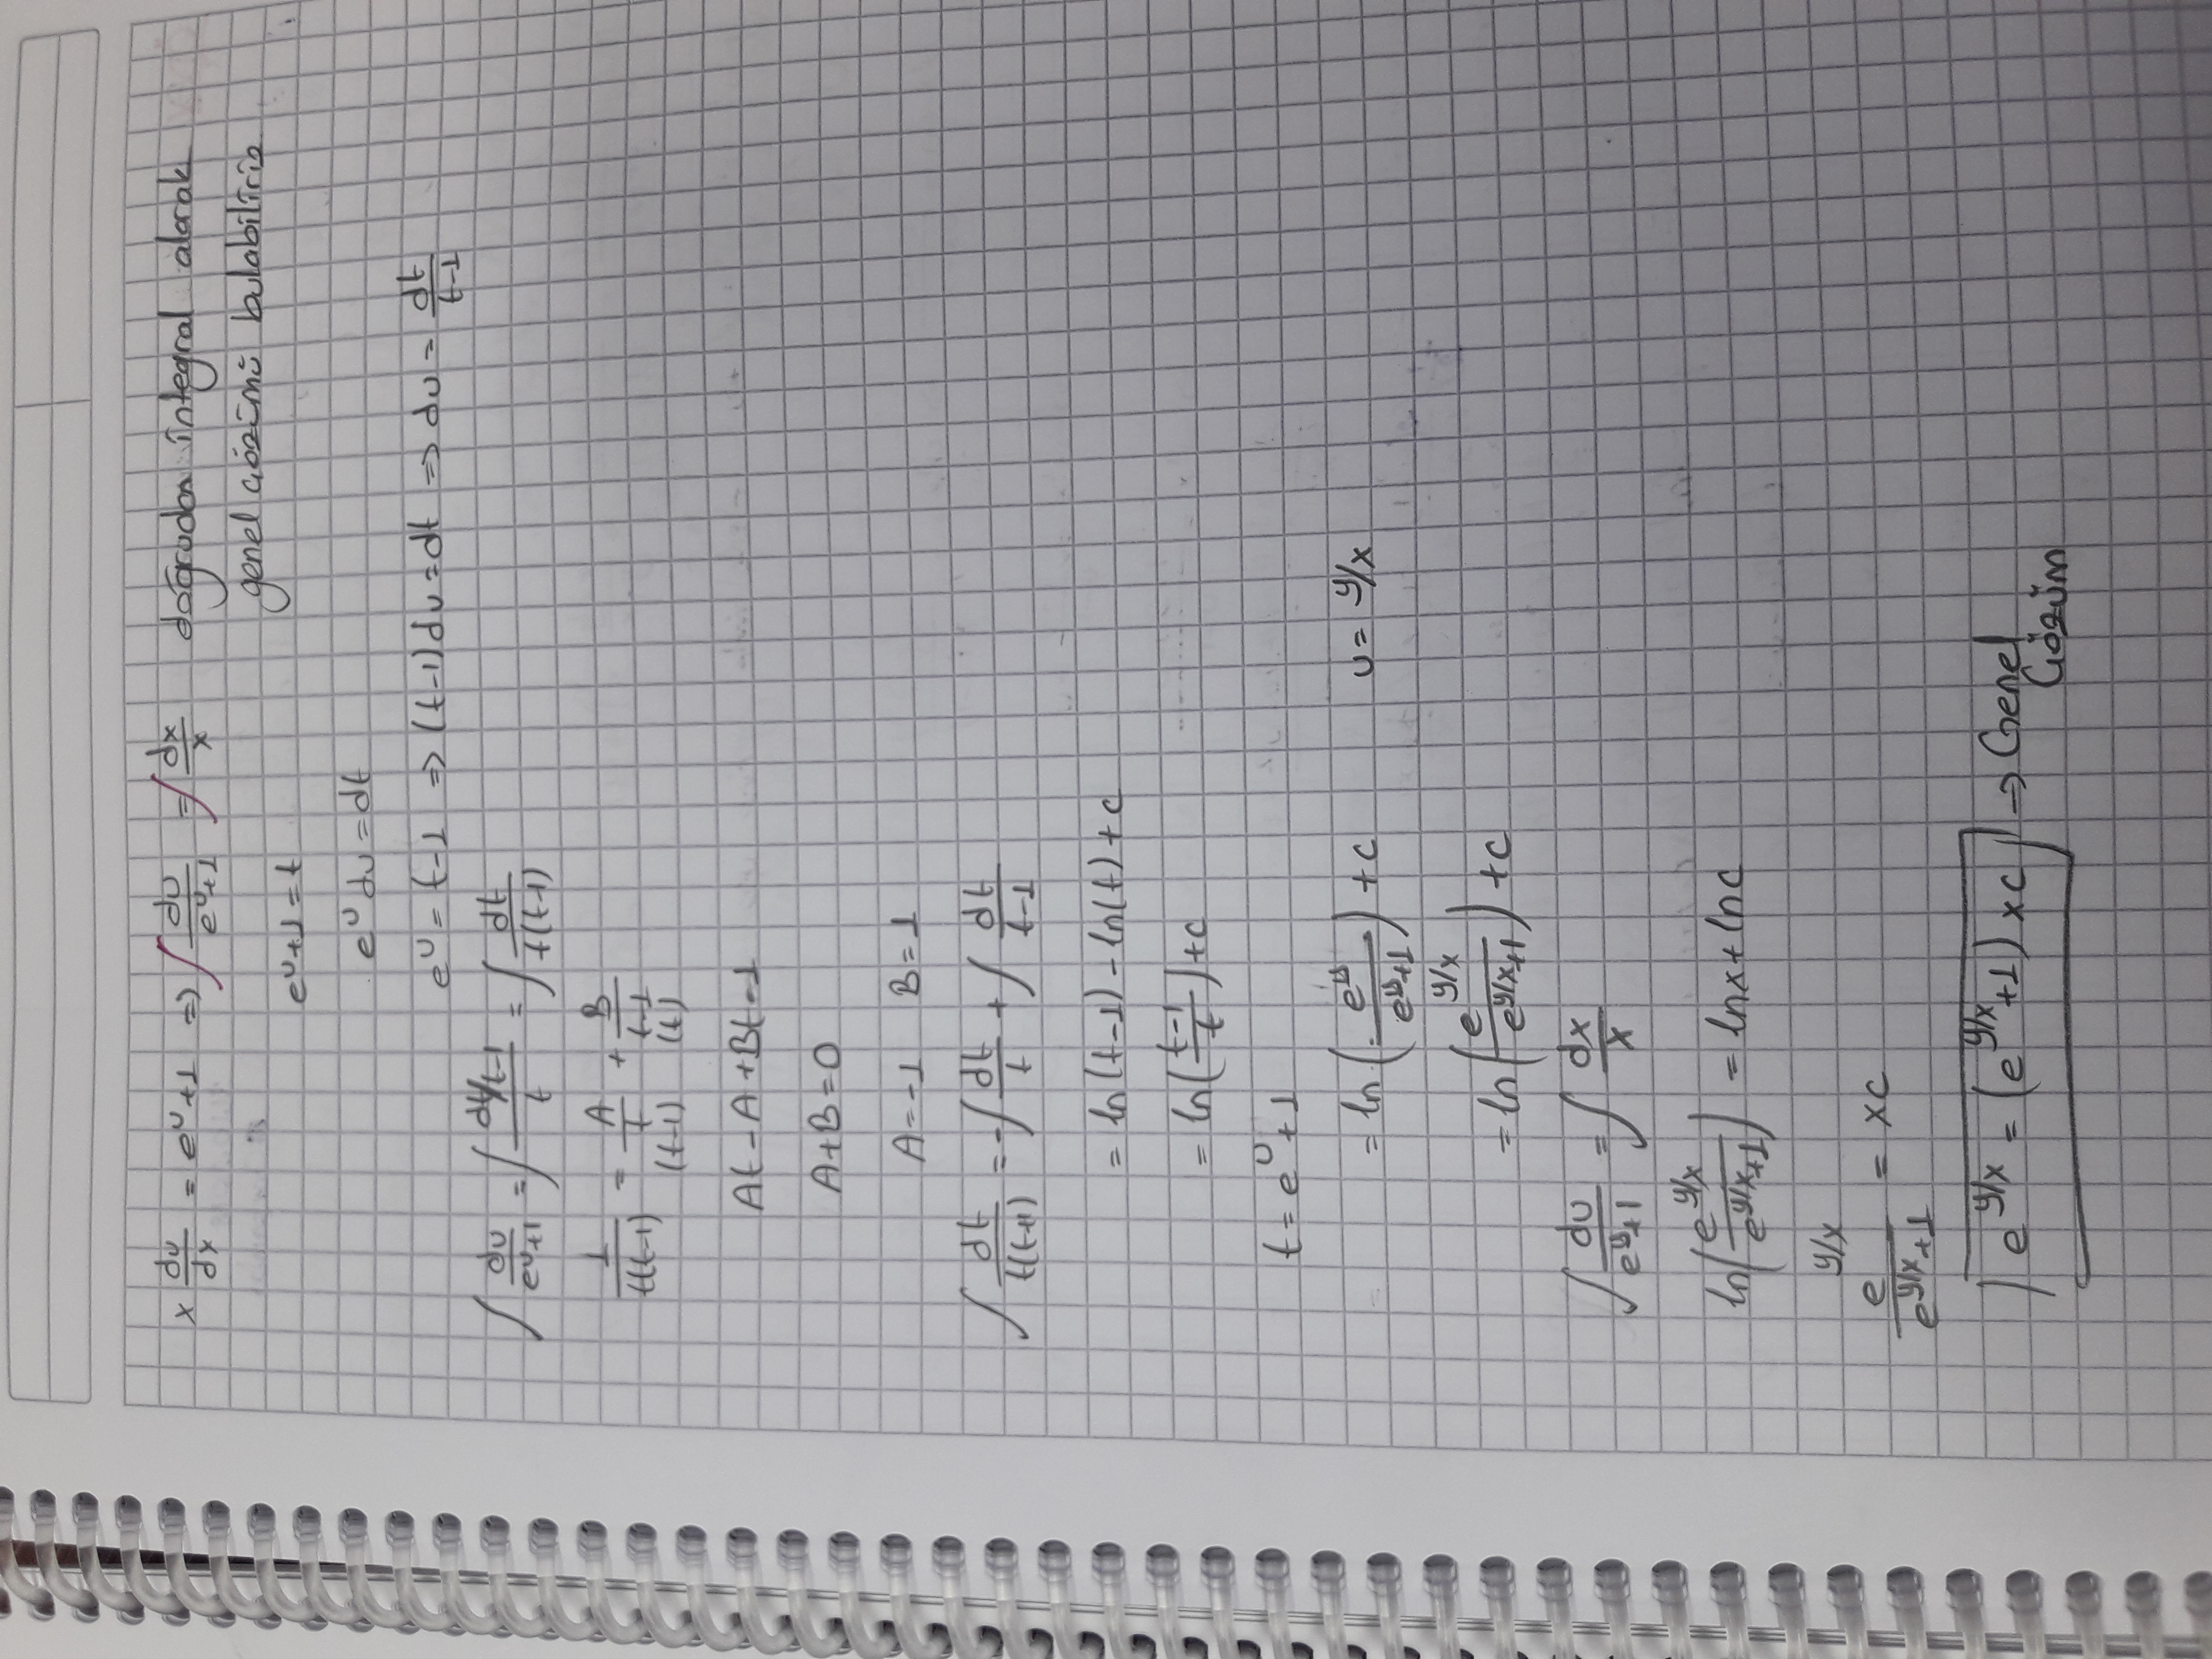 x du/dx = e^u+1 => ∫ du/(e^u+1) = ∫ dx/x doğrudan integral alarak
genel çözümü bulabiliriz
e^u+1=t
e^u du=dt
e^u = t-1 => (t-1)du=dt => du = dt/(t-1)
∫ du/(e^u+1) = ∫ (dt/t-1)/t = ∫ dt/(t(t-1))
1/(t(t-1)) = A/t + B/(t-1)
(t-1) (t)
At-A+Bt=1
A+B=0
A=-1 B=1
∫ dt/(t(t+1)) = -∫ dt/t + ∫ dt/(t-1)
= ln(t-1)-ln(t)+c
= ln((t-1)/t)+c
t=e^u+1
= ln(e^u/(e^u+1)) +c u= y/x
= ln(e^y/x/(e^y/x+1)) +c
∫ du/(e^u+1) = ∫ dx/x
ln(e^y/x/(e^y/x+1)) = lnx+lnc
e^y/x/(e^y/x+1) = xc
e^y/x = (e^y/x+1)xc → Genel
Çözüm